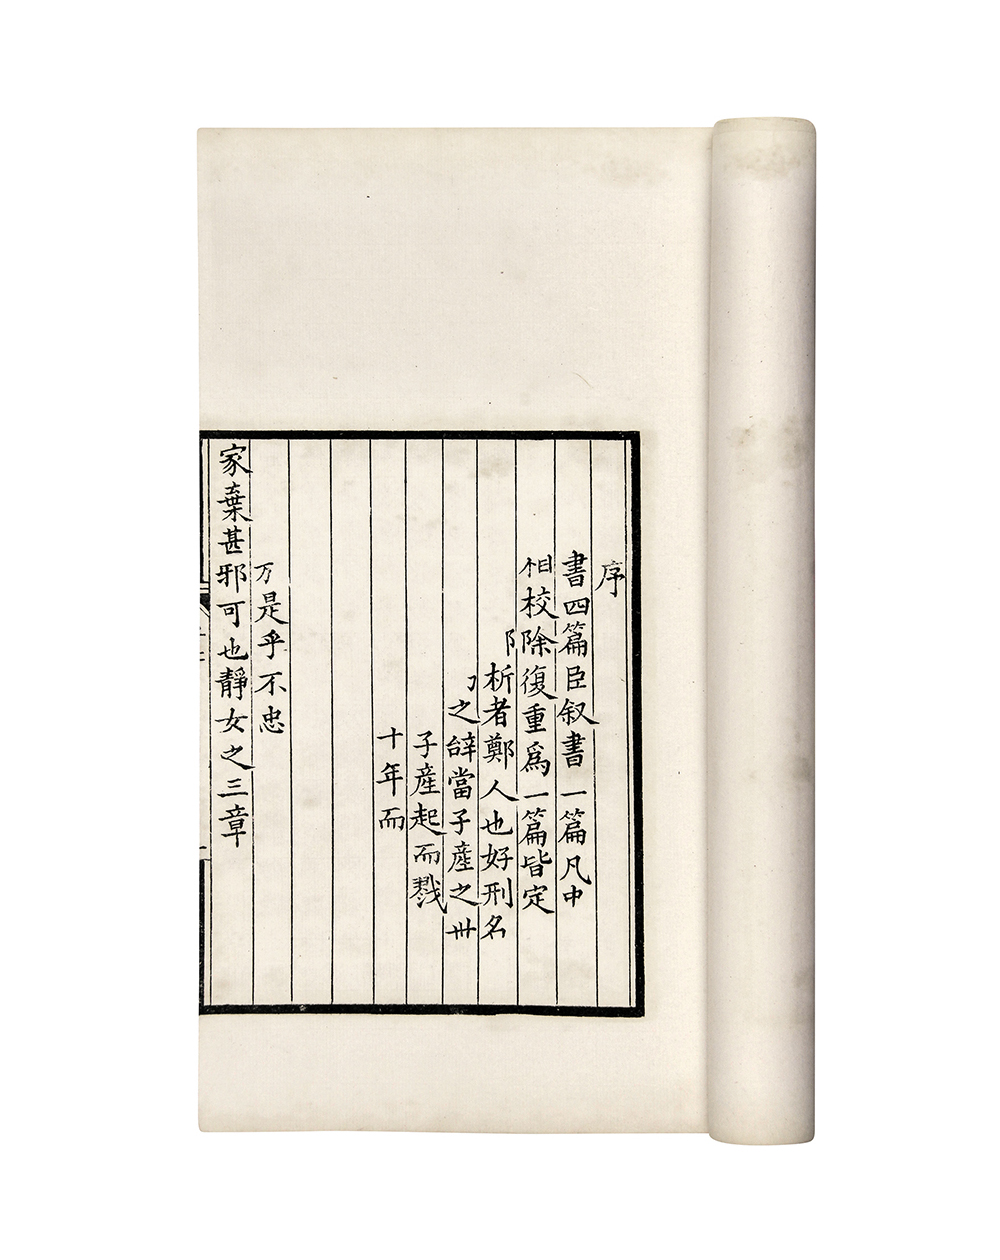 序
書四篇臣叙書一篇凡中
相校除復重爲一篇皆定
析者鄭人也好刑名
之辝當子產之丗
子產起而戮
十年而
是乎不忠
家棄甚邪可也靜女之三章